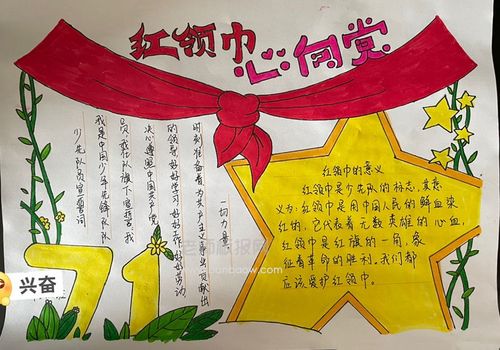 红领巾
心向党
少先队员宣誓词
我是中国少年先锋队队
员,我在队旗下宣誓:我
决心遵照中国共产党
的领导,好好学习,好好工作,好好劳动
时刻准备着,为共产主义事业,贡献出
一切力量
71
红领巾的意义
红领巾是少先队的标志,其意
义为:红领巾是用中国人民的鲜血染
红的,它代表着无数英雄的心血,
红领巾是红旗的一角,象
征着革命的胜利,我们都
应该爱护红领巾。
兴奋